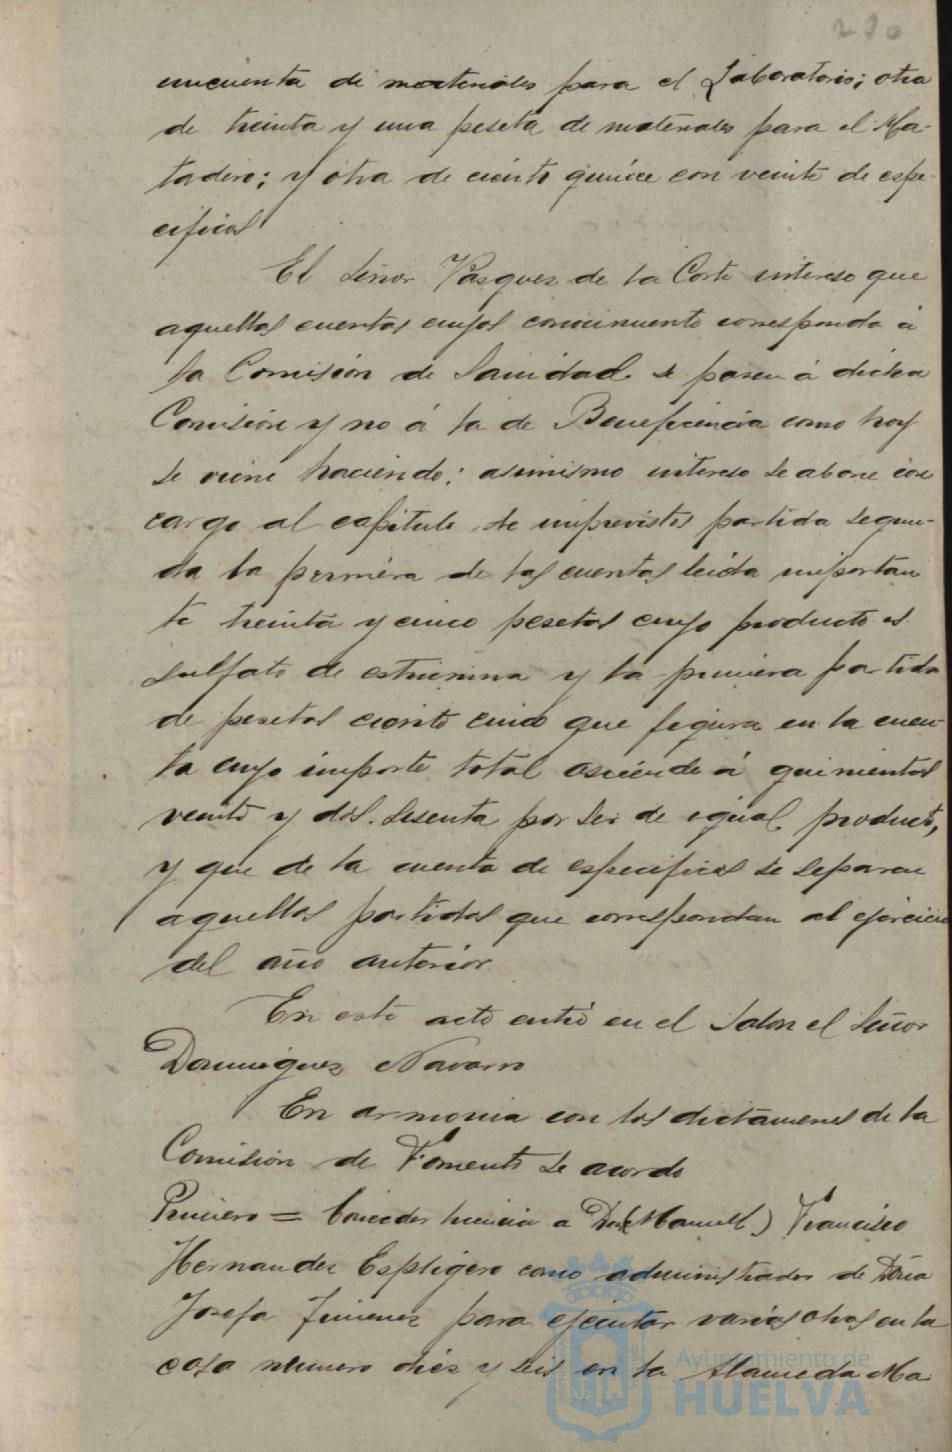 270
cincuenta de materiales para el Laboratorio; otra
de treinta y una peseta de materiales para el Ma-
tadero; y otra de ciento quince con veinte de espe-
cificos
El Señor Vasquez de la Corte intereso que
aquellas cuentas cuyos conocimiento corresponda á
la Comisión de Sanidad se pasen á dicha
Comision y no á la de Beneficencia como hoy
se viene haciendo: asimismo intereso se abone con
cargo al capitulo de imprevistos partida segun-
da la primera de las cuentas leida importan
te treinta y cinco pesetas cuyo producto es
sulfato de estricnina y la primera partida
de pesetas ciento cinco que figura en la cuen-
ta cuyo importe total asciende á quinientas
veinte y dos. sesenta por ser de igual producto,
y que de la cuenta de especificos se separen
aquellas partidas que correspondan al ejercicio
del año anterior
En este acto entró en el Salon el Señor
Dominguez Navarro
En armonia con los dictamenes de la
Comision de Fomento se acordo
Primero = Conceder licencia a Don (Manuel) Francisco
Hernandez Espligero como administrador de Doña
Josefa Jimenez para ejecutar varias obras en la
casa numero diez y seis en la Alameda Ma
Ayuntamiento de
HUELVA